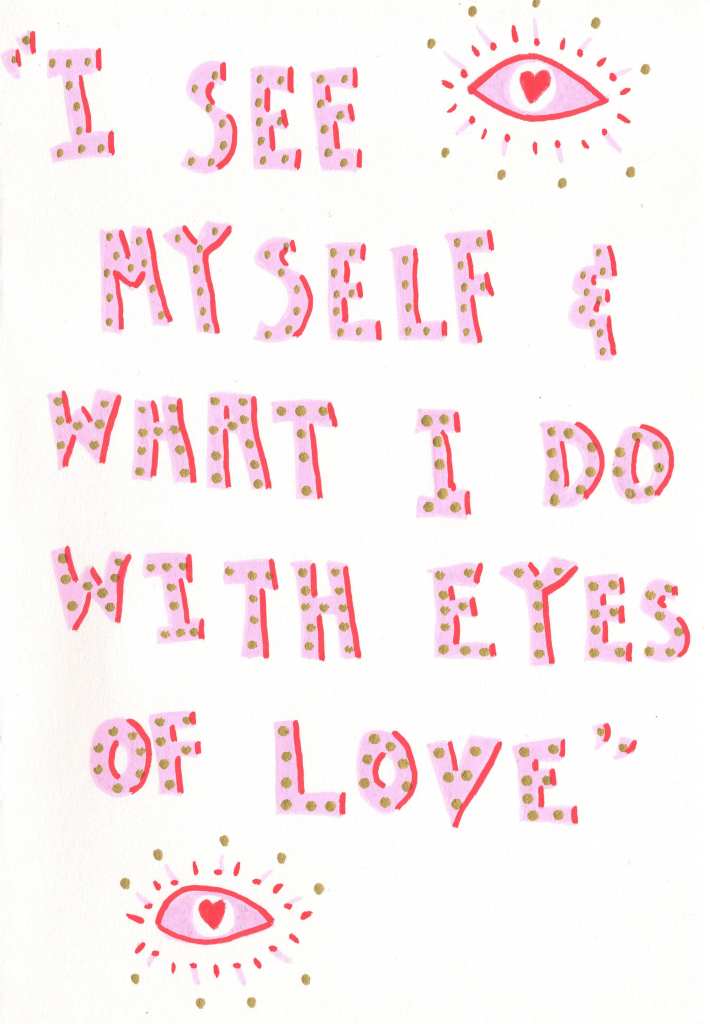 "I SEE
MYSELF &
WHAT I DO
WITH EYES
OF LOVE"